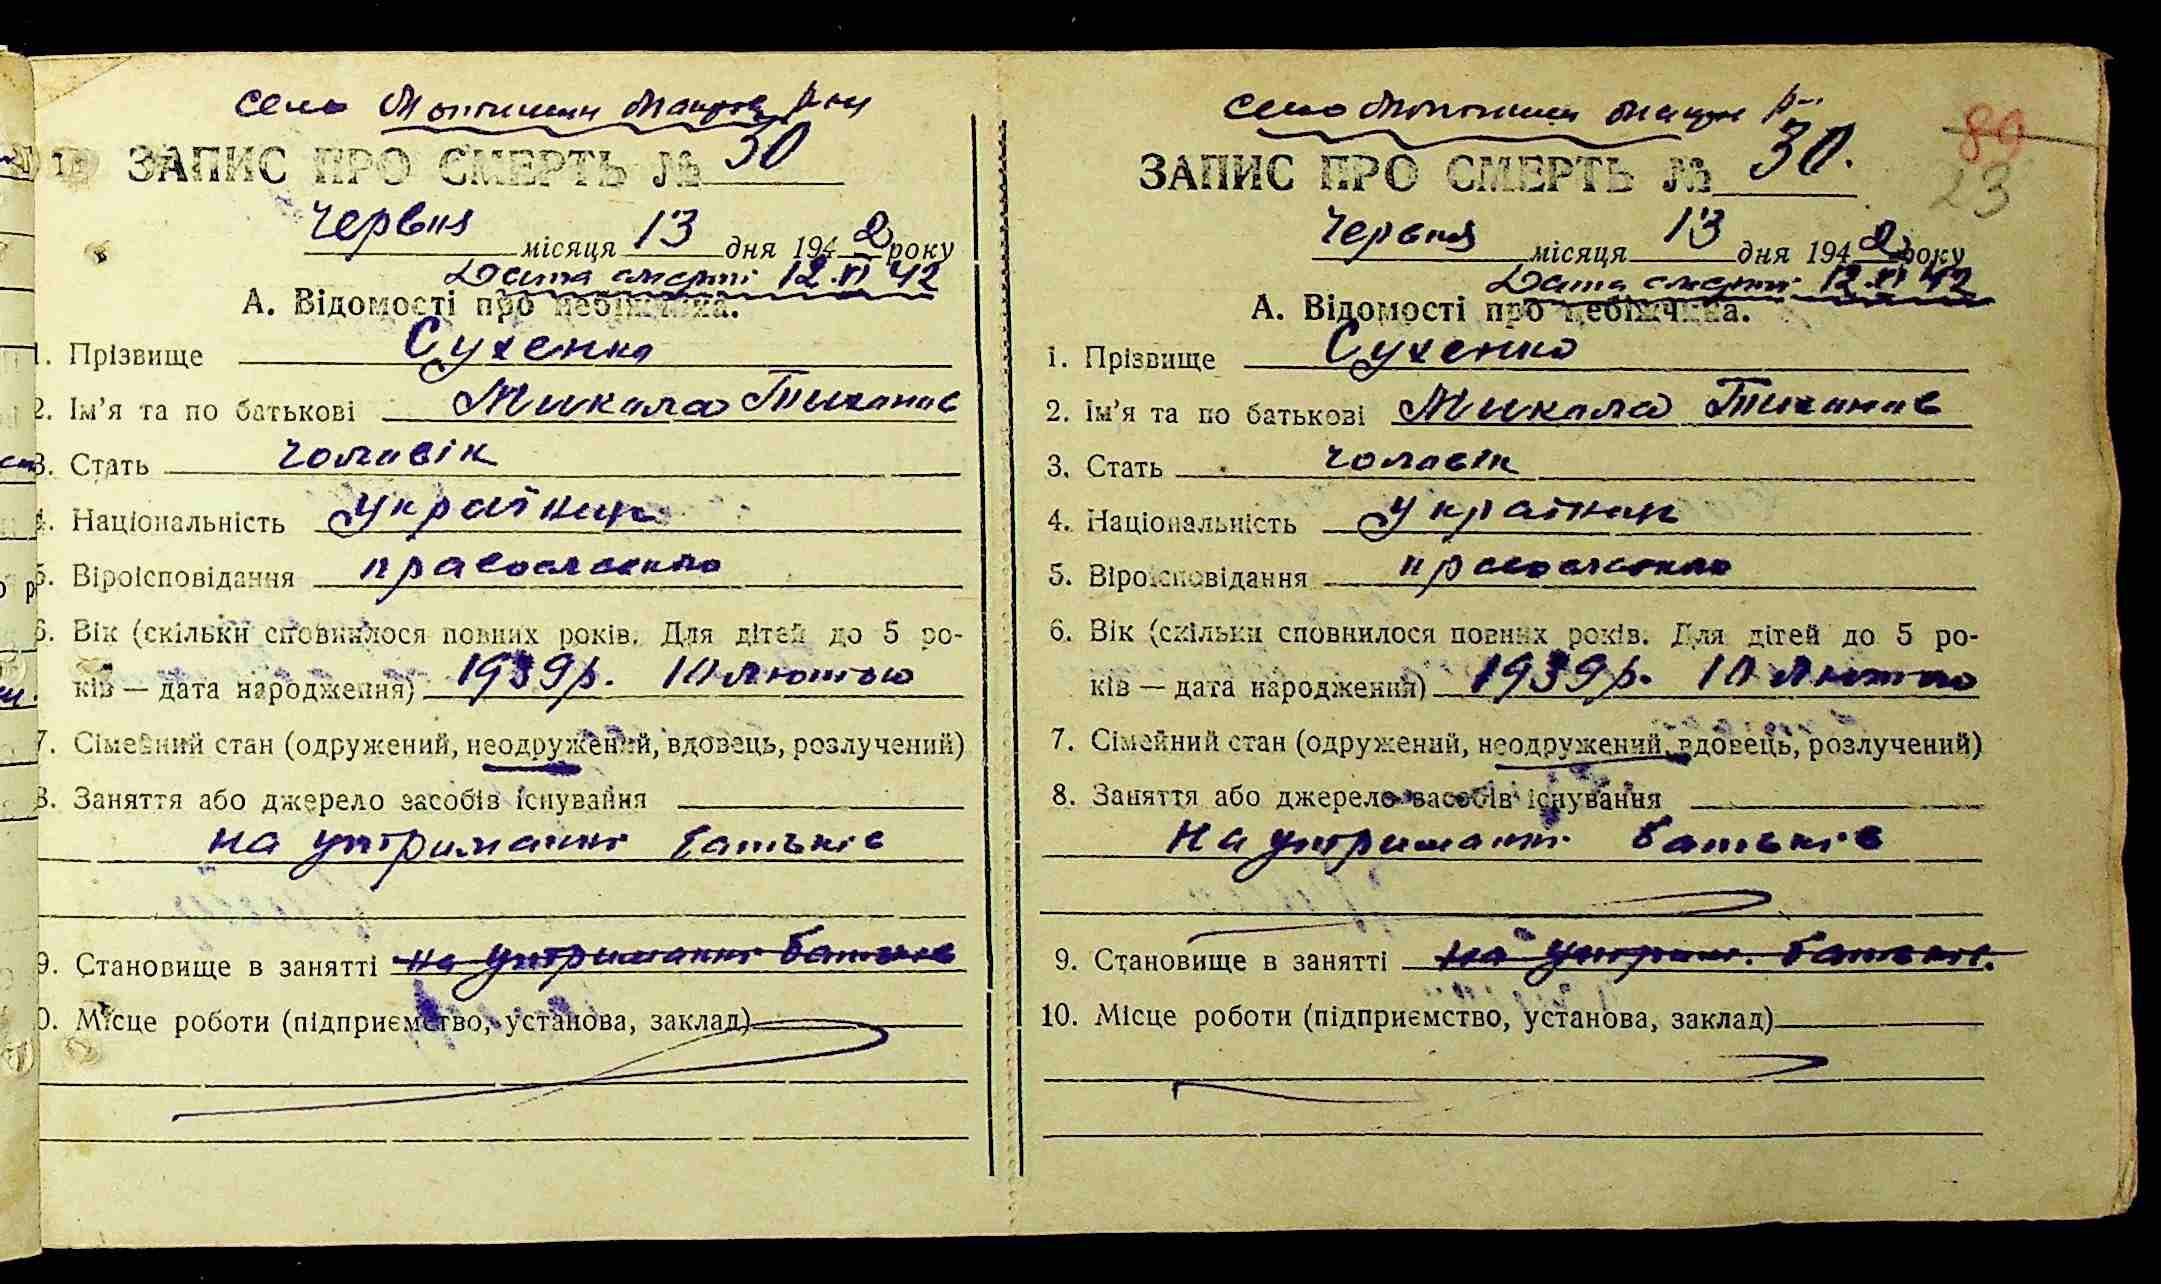 село Мотишин Макарів р-ну
ЗАПИС ПРО СМЕРТЬ № 30
червня місяця 13 дня 1942 року
Дата смерті 12.VI 42
А. Відомості про небіжчика.
1. Прізвище Сухенко
2. Ім'я та по батькові Микола Тиханов
3. Стать чоловік
4. Національність українец
5. Віроісповідання православно
6. Вік (скільки сповнилося повних років. Для дітей до 5 ро-
ків — дата народження) 1939р. 10 лютого
7. Сімейний стан (одружений, неодружений, вдовець, розлучений)
8. Заняття або джерело засобів існування
на утриманні батьків
9. Становище в занятті на утриманні батьків
0. Місце роботи (підприємство, установа, заклад)
село Мотишин р-
80
23
ЗАПИС ПРО СМЕРТЬ № 30.
червня місяця 13 дня 1942 року
Дата смерті 12.VI 42
А. Відомості про небіжчика.
1. Прізвище Сухенко
2. Ім'я та по батькові Микола Тиханов
3. Стать чоловік
4. Національність українец
5. Віроісповідання православно
6. Вік (скільки сповнилося повних років. Для дітей до 5 ро-
ків — дата народження) 1939р. 10 лютого
7. Сімейний стан (одружений, неодружений, вдовець, розлучений)
8. Заняття або джерело засобів існування
на утриманні батьків
9. Становище в занятті на утрим. батьків.
10. Місце роботи (підприємство, установа, заклад)